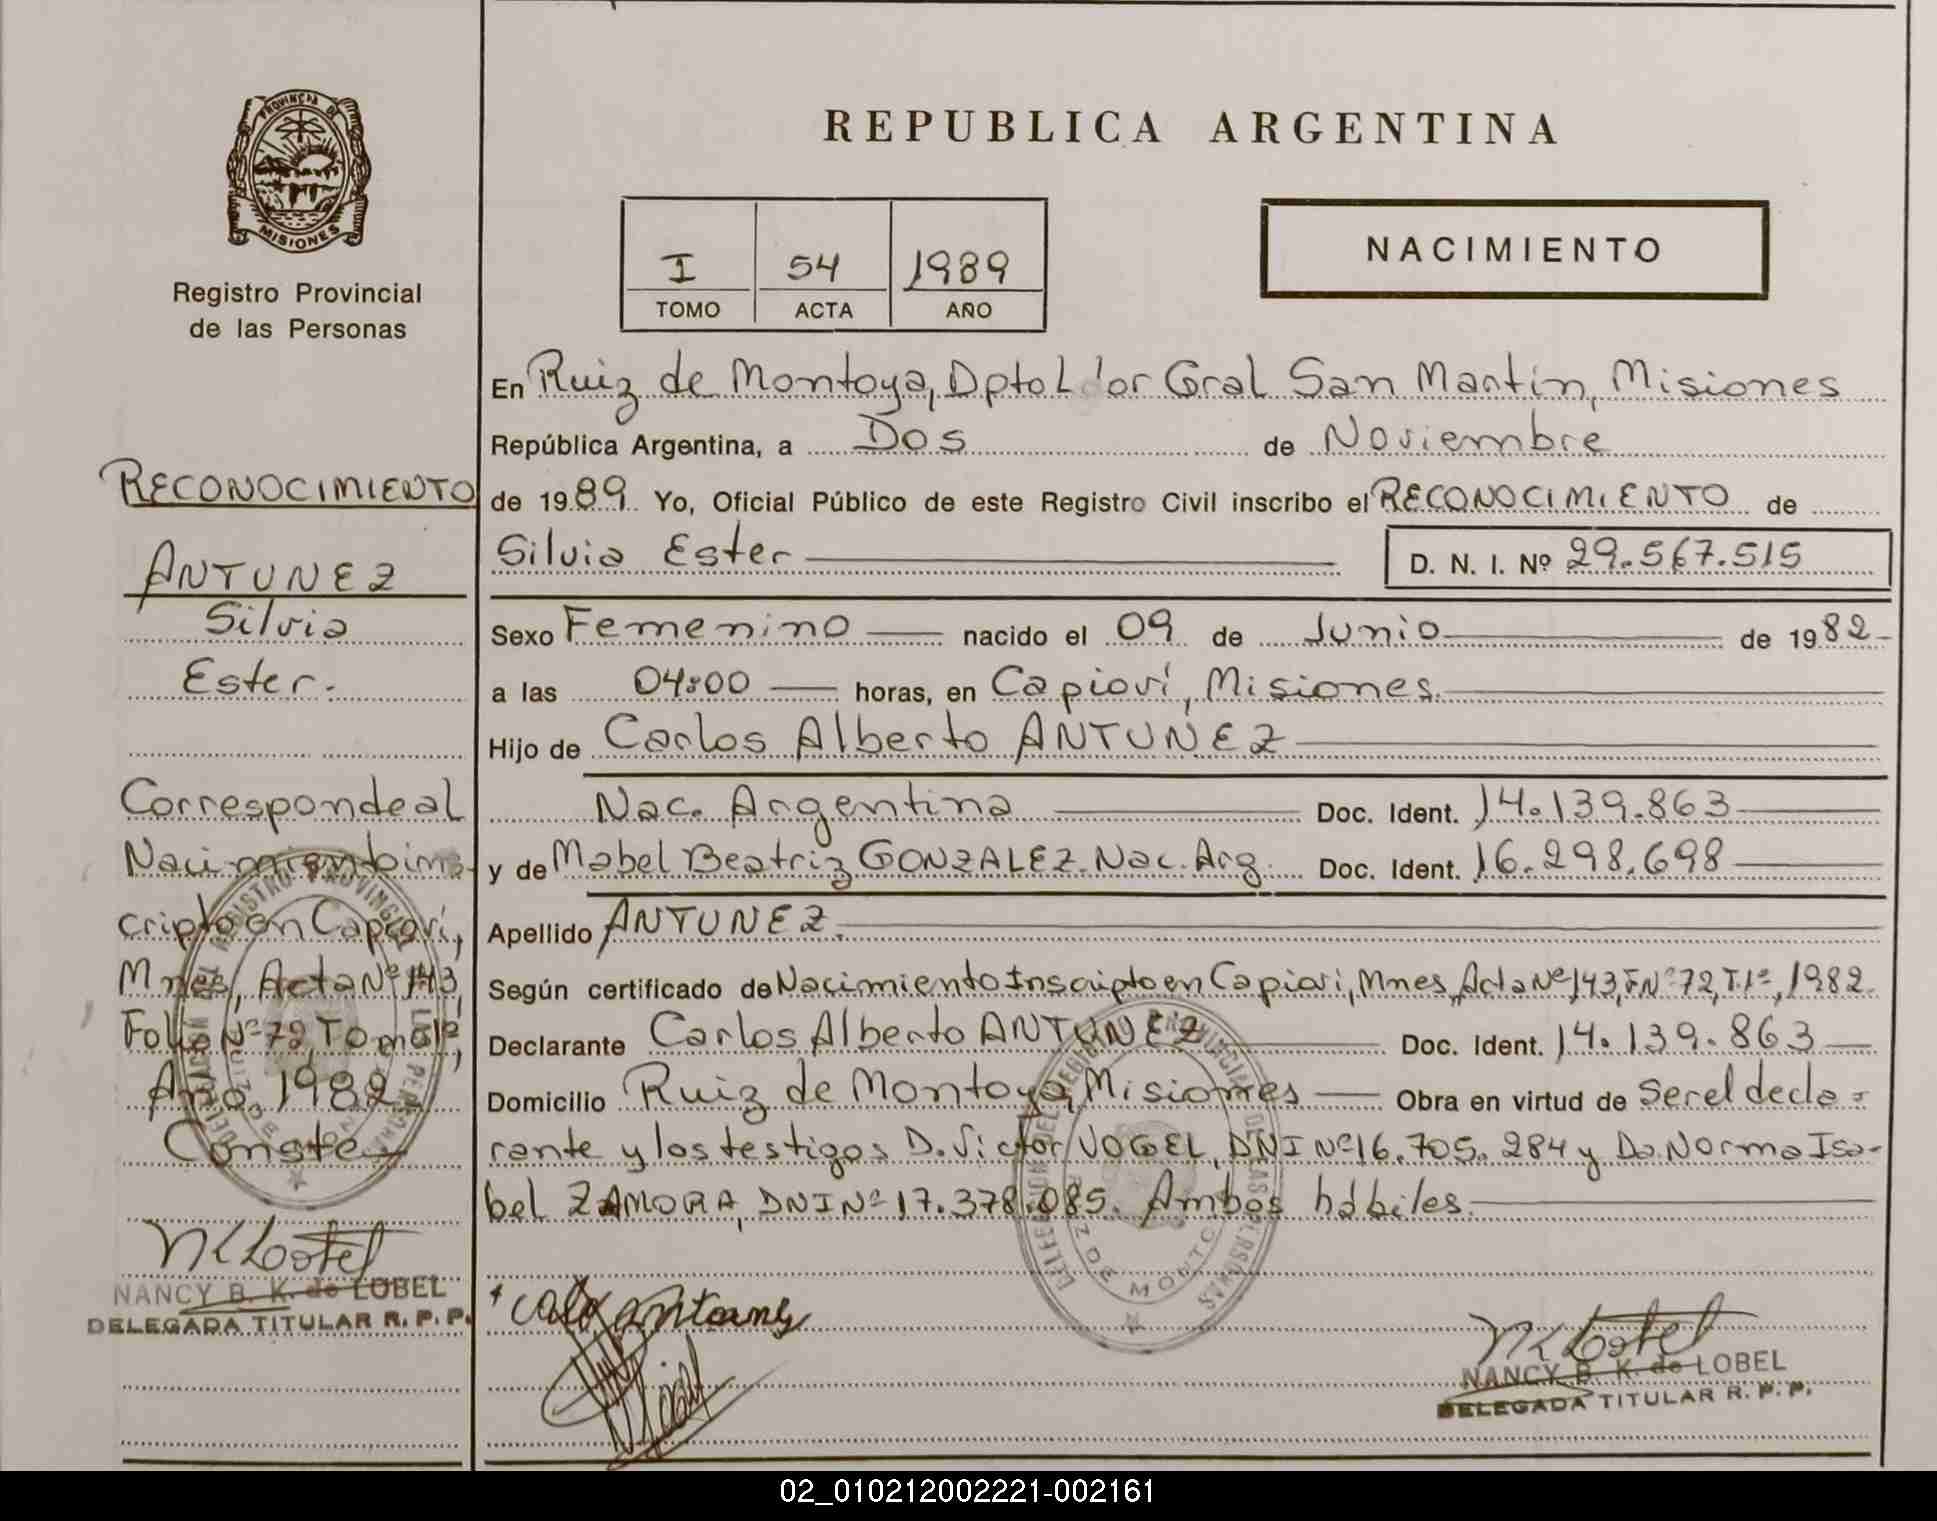 PROVINCIA DE
MISIONES
Registro Provincial
de las Personas
RECONOCIMIENTO
ANTUNEZ
Silvia
Ester.
Corresponde al
Nacimiento ins-
cripto en Capioví,
Mnes, Acta Nº 143,
Folio Nº 72, Tomo 1º,
Año 1982.
Conste
NANCY B. K. de LOBEL
DELEGADA TITULAR R. P. P.
REPUBLICA ARGENTINA
I 54 1989
TOMO ACTA AÑO
NACIMIENTO
En Ruiz de Montoya, Dpto L'or Gral San Martín, Misiones
República Argentina, a Dos de Noviembre
de 1989. Yo, Oficial Público de este Registro Civil inscribo el RECONOCIMIENTO de
Silvia Ester D. N. I. Nº 29.567.515
Sexo Femenino nacido el 09 de Junio de 1982
a las 04:00 horas, en Capioví, Misiones.
Hijo de Carlos Alberto ANTUNEZ
Nac. Argentina Doc. Ident. 14.139.863
y de Mabel Beatriz GONZALEZ. Nac. Arg. Doc. Ident. 16.298.698
Apellido ANTUNEZ.
Según certificado de Nacimiento Inscripto en Capioví, Mnes, Acta Nº 143, F Nº 72, T. 1º, 1982.
Declarante Carlos Alberto ANTUNEZ Doc. Ident. 14.139.863
Domicilio Ruiz de Montoya, Misiones Obra en virtud de Ser el decla-
rante y los testigos D. Victor VOGEL, DNI Nº 16.705.284 y Da Norma Isa-
bel ZAMORA, DNI Nº 17.378.085. Ambos hábiles.
NANCY B. K. de LOBEL
DELEGADA TITULAR R. P. P.
02_010212002221-002161